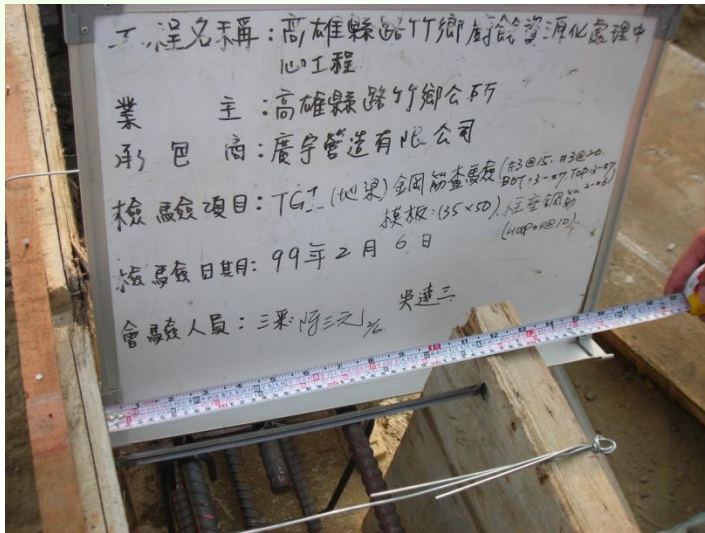 工程名稱:高雄縣路竹鄉廚餘資源化處理中
心工程
業主:高雄縣路竹鄉公所
承包商:廣宇營造有限公司
檢驗項目:TG1 (地梁) 鋼筋查驗 (#3@15. #3@20.
BOT:3-#7, TOP:3-#7,
模板:(35×50). 柱座鋼筋
(HOOP #4@10)
檢驗日期:99年2月6日
吳達三
會驗人員:三彩 陳三元 2/6